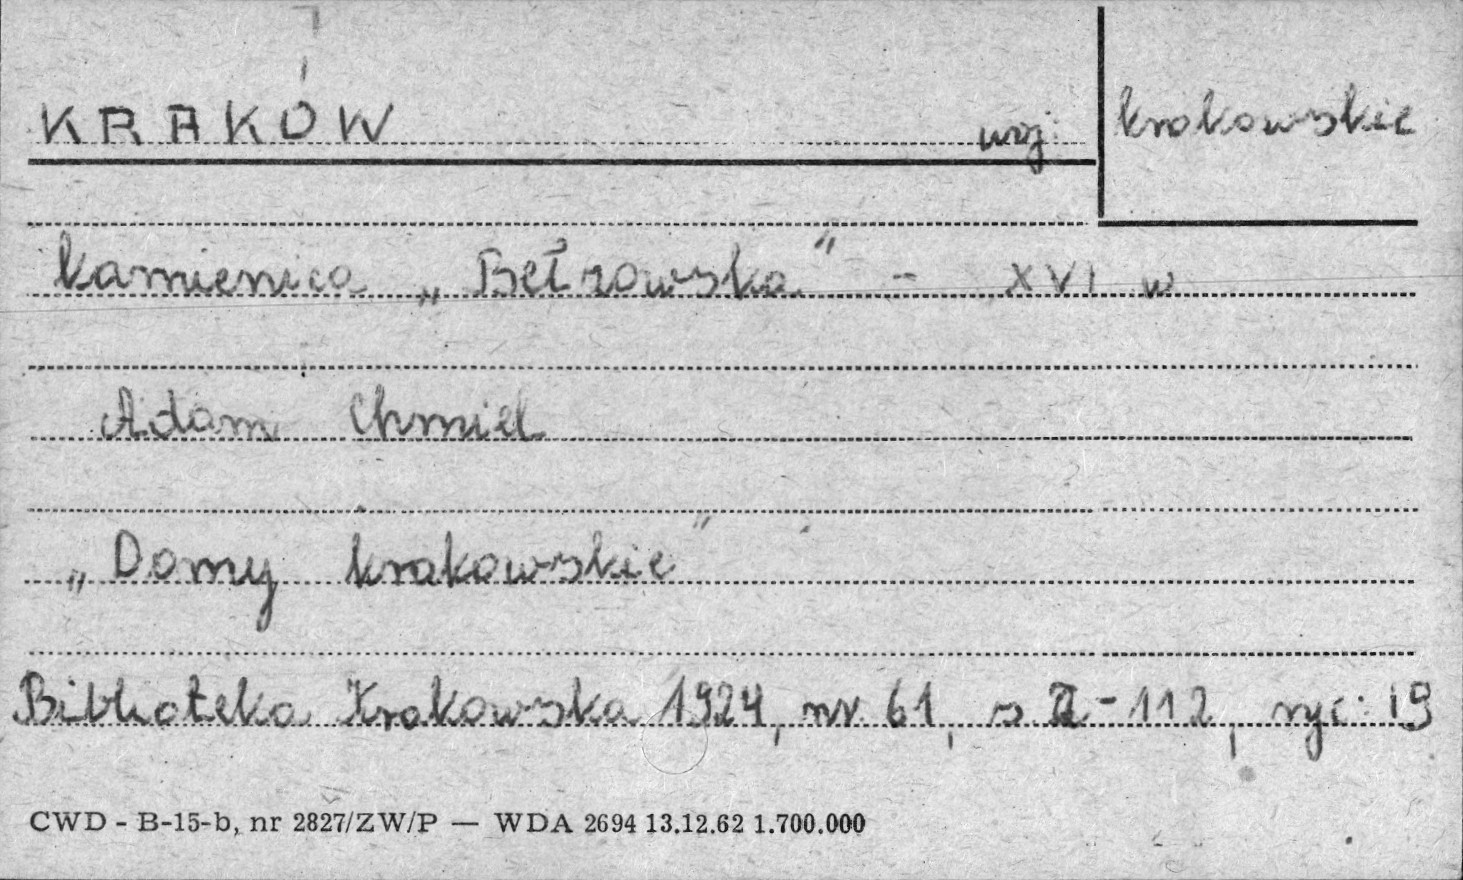 KRAKÓW woj. krakowskie
kamienica „Bełzowska" - XVI w
Adam Chmiel
„Domy krakowskie"
Biblioteka Krakowska 1924, nr 61, s -112, ryc: 19
CWD - B-15-b, nr 2827/ZW/P — WDA 2694 13.12.62 1.700.000